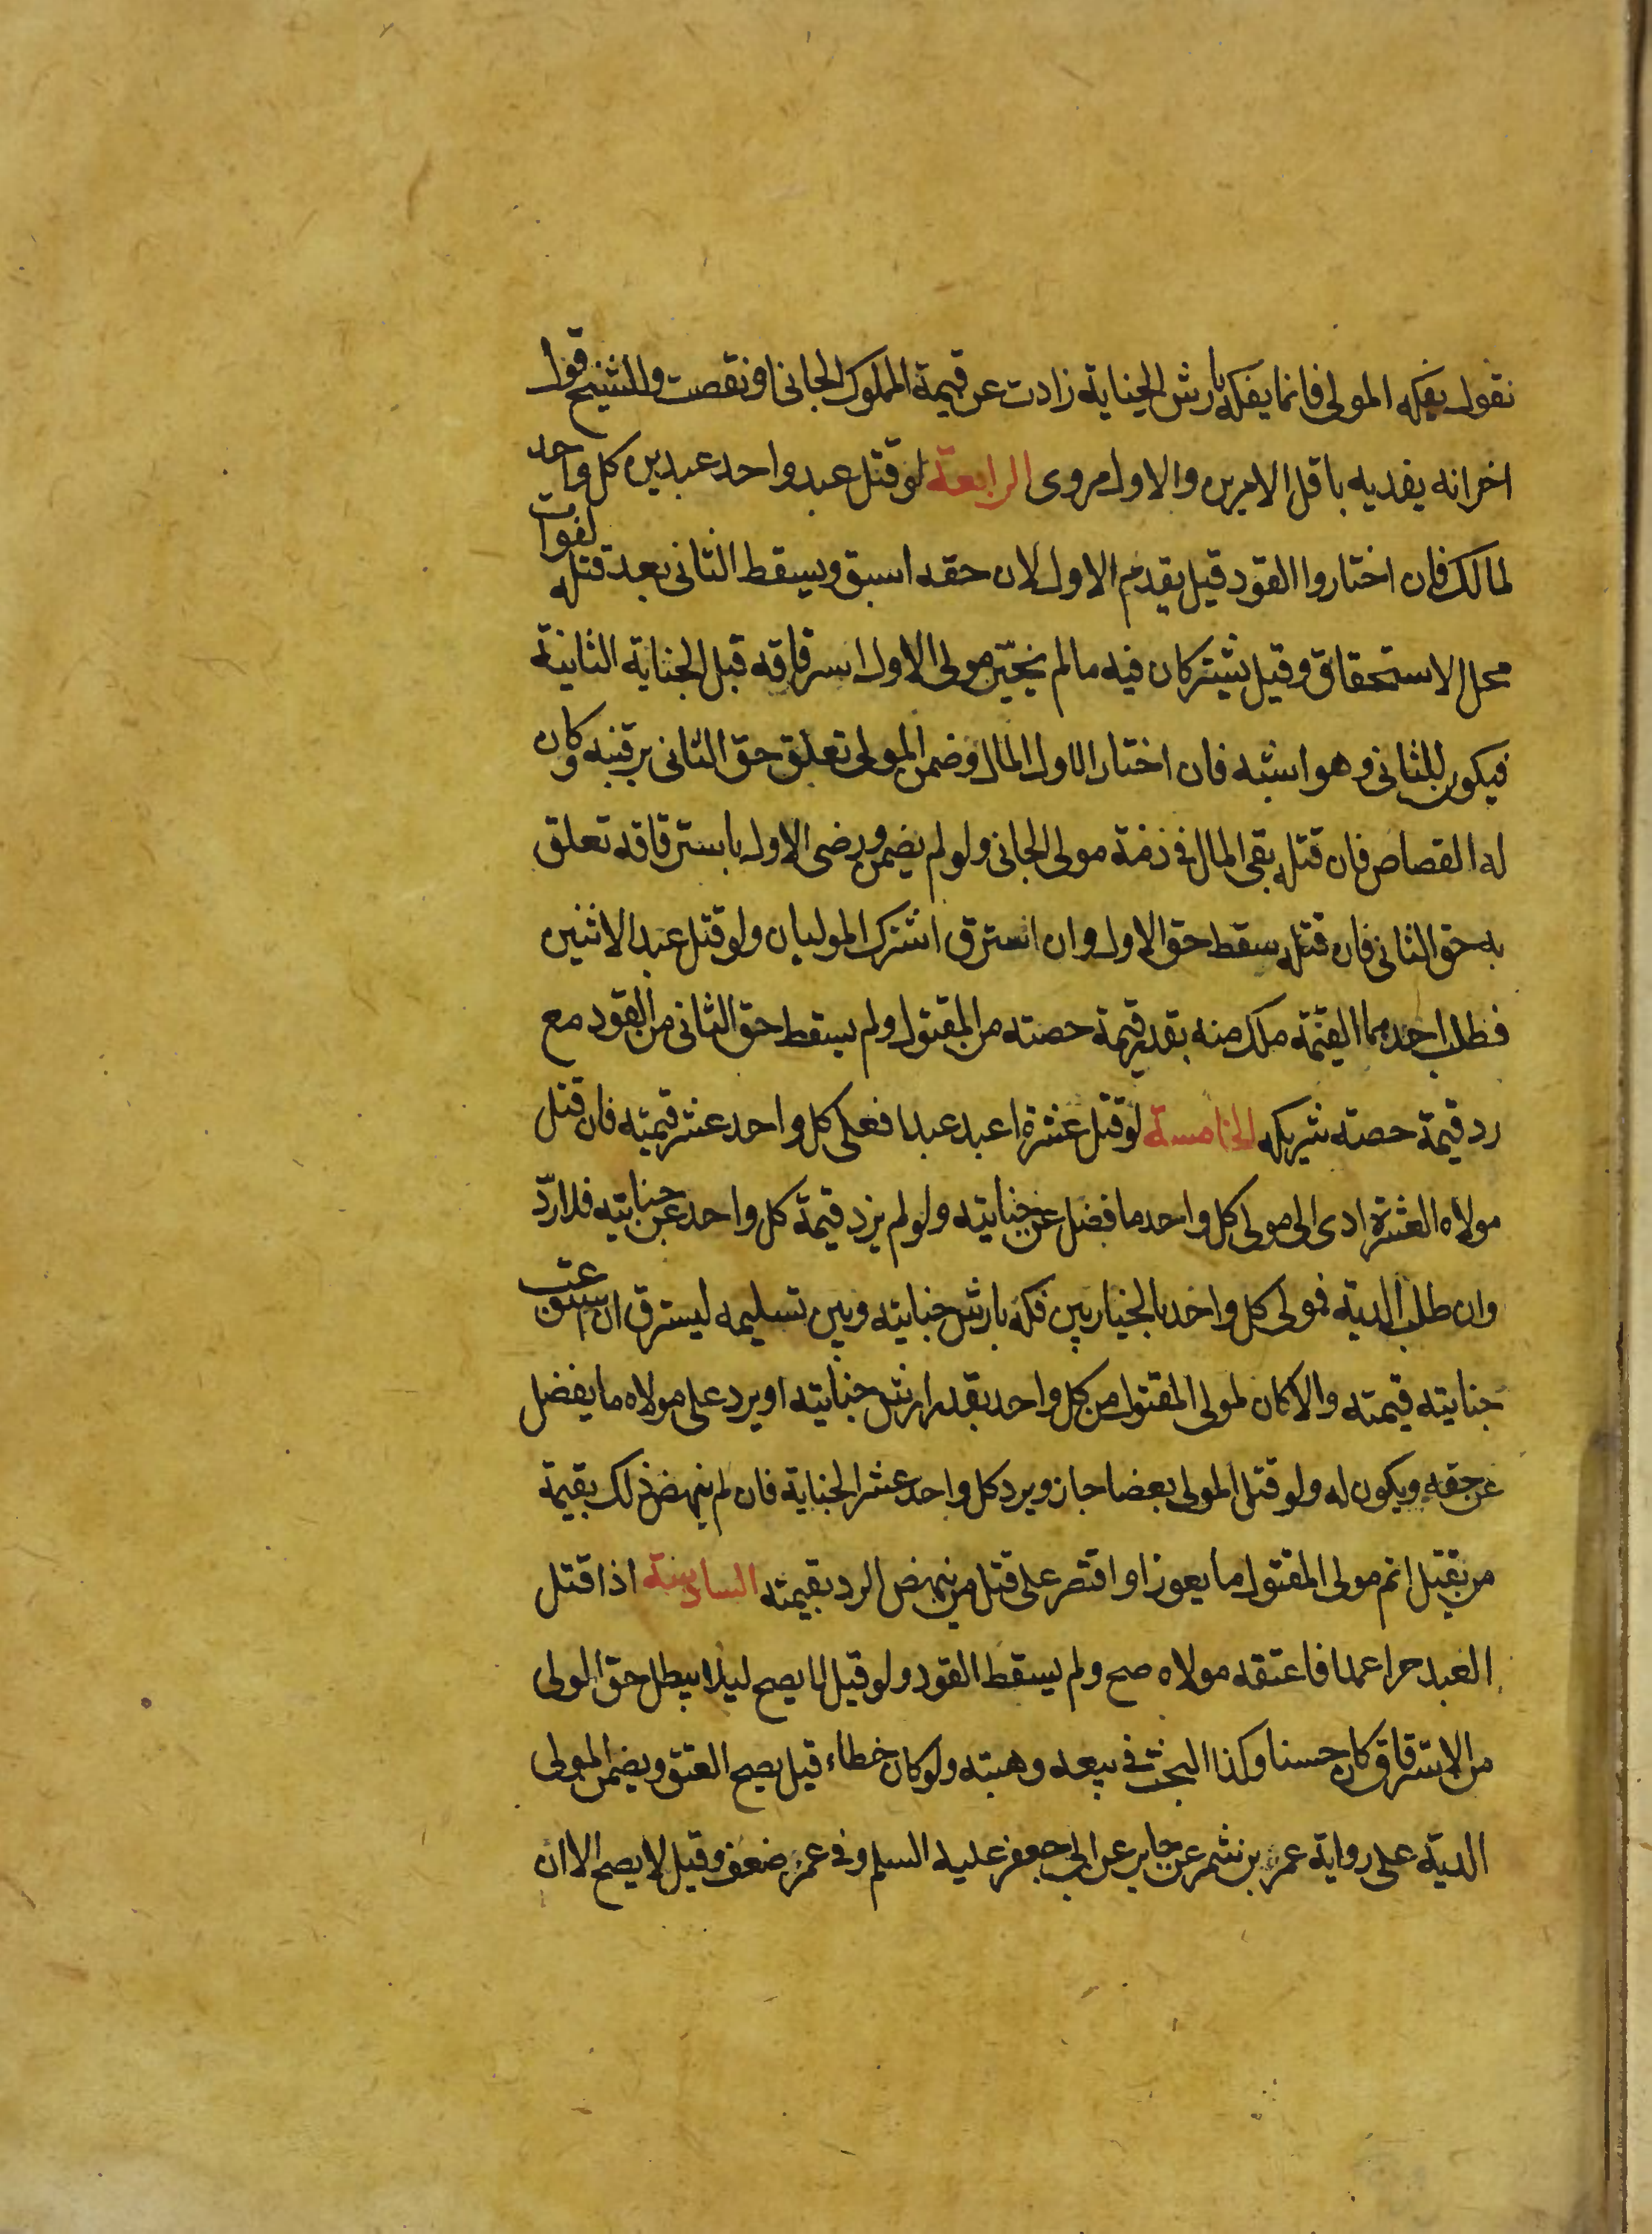 نقول يفكه المولى فانما يفكه بارش الجناية زادت عن قيمة المملوك الجانى او نقصت وللشيخ قول
اخر انه يفديه باقل الامرين والاول مروى الرابعة لو قتل عبد واحد عبدين كل واحد
لمالك فان اختاروا القود قيل يقدم الاول لان حقه اسبق ويسقط الثانى بعد قتله لفوات
محل الاستحقاق وقيل يشتركان فيه ما لم يختر مولى الاول استرقاقه قبل الجناية الثانية
فيكون للثانى وهو اشبه فان اختار الاول المال وضمن المولى تعلق حق الثانى برقبته وكان
له القصاص فان قتله بقى المال فى ذمة مولى الجانى ولو لم يضمن ورضى الاول باسترقاقه تعلق
به حق الثانى فان قتله سقط حق الاول وان استرق اشترك الموليان ولو قتل عبدا لاثنين
فطلب احدهما القيمة ملك منه بقدر قيمة حصته من المقتول ولم يسقط حق الثانى من القود مع
رد قيمة حصته شريكه الخامسة لو قتل عشرة اعبد عبدا فعلى كل واحد عشر قيمته فان قتل
مولاه العشرة ادى الى مولى كل واحد ما فضل عن جنايته ولو لم يزد قيمة كل واحد عن جنايته فلا ردّ
وان طلب الدية فمولى كل واحد بالخيار بين فكه بارش جنايته وبين تسليمه ليسترق ان استوعبت
جنايته قيمته والا كان لمولى المقتول من كل واحد بقدر ارش جنايته او يرد على مولاه ما يفضل
عن حقه ويكون له ولو قتل المولى بعضا جاز ويرد كل واحد عشر الجناية فان لم ينهض ذلك بقيمة
من يقتل اتم مولى المقتول ما يعوز او اقتصر على قتل من ينهض الرد بقيمته السادسة اذا قتل
العبد حرا عمدا فاعتقه مولاه صح ولم يسقط القود ولو قيل لا يصح ليلا يبطل حق الولى
من الاسترقاق كان حسنا وكذا البحث فى بيعه وهبته ولو كان خطاء قيل يصح العتق ويضمن المولى
الدية على رواية عمر بن شمر عن جابر عن ابى جعفر عليه السلم وفى عمر ضعف وقيل لا يصح الا ان